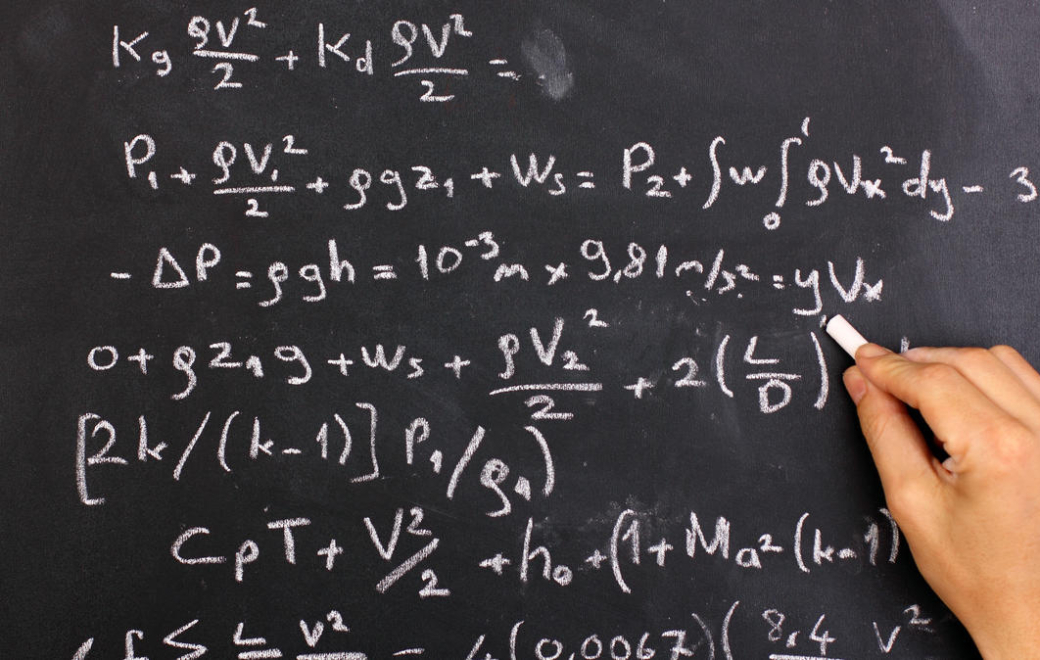 Kg ρV²/2 + Kd ρV²/2 =
P₁ + ρV₁²/2 + ρgz₁ + Ws = P₂ + ∫w∫₀¹ ρVx² dy - 3
- ΔP = ρgh = 10⁻³m × 9,81 m/s² = yVx
0 + ρz₁g + Ws + ρV₂²/2 + 2(L/D)
[2k/(k-1)] P₁/ρ₁)
CpT + V²/2 + h₀ + (1 + Ma² (k-1)
(f ≤ L V² = 4(0,0067)(8,4 V²